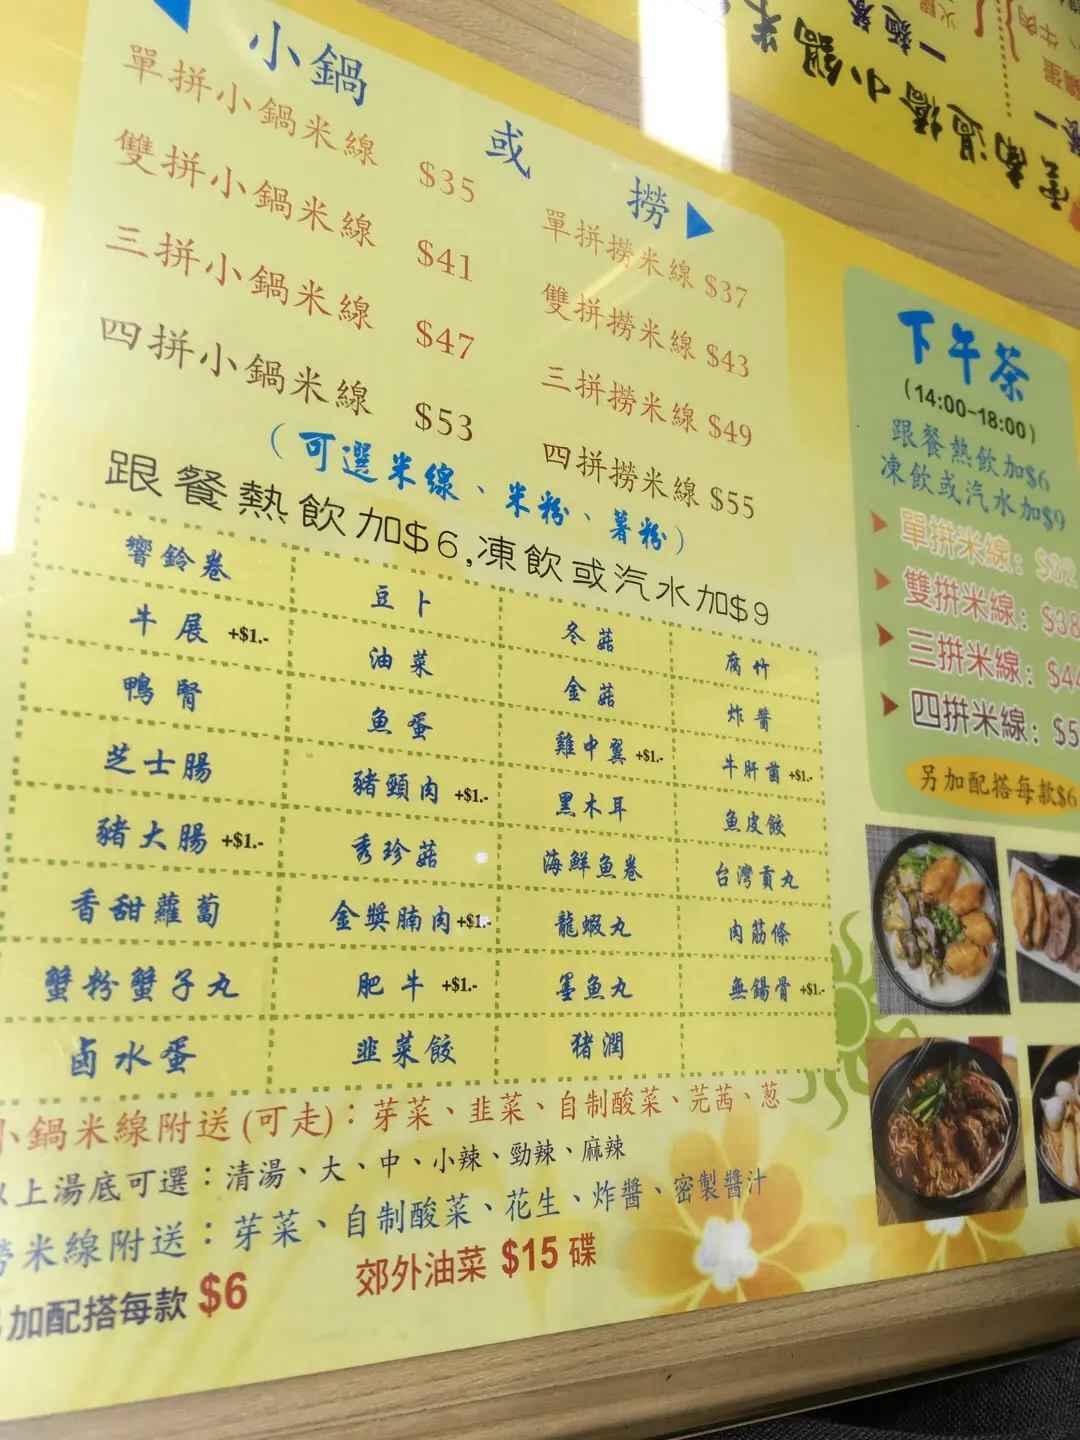 小鍋 或 撈
單拼小鍋米線 $35
雙拼小鍋米線 $41
三拼小鍋米線 $47
四拼小鍋米線 $53
單拼撈米線 $37
雙拼撈米線 $43
三拼撈米線 $49
四拼撈米線 $55
(可選米線、米粉、薯粉)
跟餐熱飲加$6,凍飲或汽水加$9
響鈴卷 豆卜 冬菇 腐竹
牛展 +$1.- 油菜 金菇 炸醬
鴨腎 魚蛋 雞中翼 +$1.- 牛肝菌 +$1.-
芝士腸 豬頸肉 +$1.- 黑木耳 魚皮餃
豬大腸 +$1.- 秀珍菇 海鮮魚卷 台灣貢丸
香甜蘿蔔 金獎腩肉 +$1.- 龍蝦丸 肉筋條
蟹粉蟹子丸 肥牛 +$1.- 墨魚丸 無鍚骨 +$1.-
鹵水蛋 韮菜餃 猪潤
小鍋米線附送(可走)：芽菜、韮菜、自制酸菜、芫茜、葱
以上湯底可選：清湯、大、中、小辣、勁辣、麻辣
撈米線附送：芽菜、自制酸菜、花生、炸醬、密製醬汁
加配搭每款 $6
郊外油菜 $15 碟
下午茶
(14:00-18:00)
跟餐熱飲加$6
凍飲或汽水加$9
單拼米線：$32
雙拼米線：$38
三拼米線：$44
四拼米線：$5
另加配搭每款$6
雲南過橋小鍋米